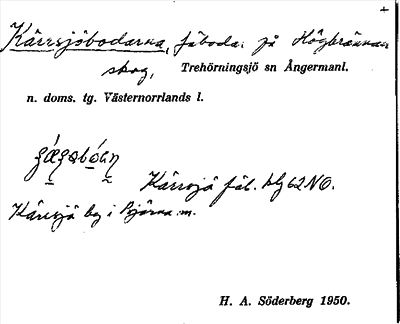 Kärrsjöbodarna, fäbodar på Högbrännan
skog, Trehörningsjö sn Ångermanl.
n. doms. tg. Västernorrlands l.
Kärrsjö fäb. blg 62 NO.
Kärrsjö by i Björna sn.
H. A. Söderberg 1950.